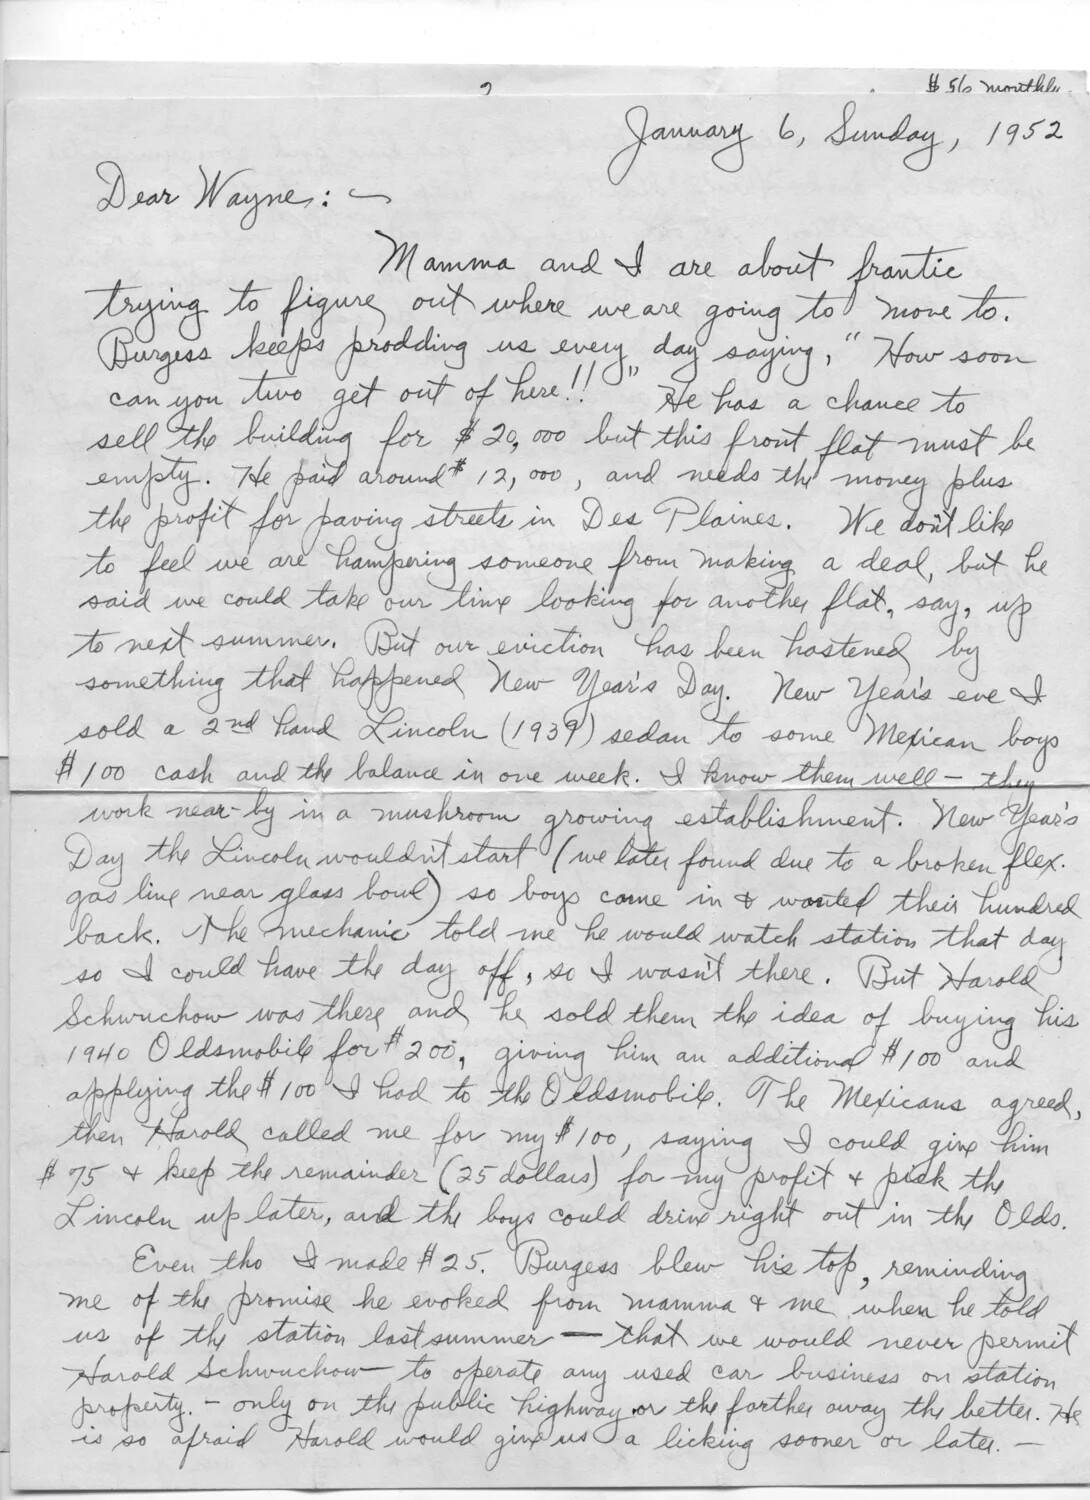 $56 monthly
January 6, Sunday, 1952
Dear Wayne: —
Mamma and I are about frantic
trying to figure out where we are going to move to.
Burgess keeps prodding us every day saying, "How soon
can you two get out of here!!" He has a chance to
sell the building for $20,000 but this front flat must be
empty. He paid around $12,000, and needs the money plus
the profit for paving streets in Des Plaines. We don't like
to feel we are hampering someone from making a deal, but he
said we could take our time looking for another flat, say, up
to next summer. But our eviction has been hastened by
something that happened New Year's Day. New Year's eve I
sold a 2nd hand Lincoln (1939) sedan to some Mexican boys
$100 cash and the balance in one week. I know them well — they
work near-by in a mushroom growing establishment. New Year's
Day the Lincoln wouldn't start (we later found due to a broken flex.
gas line near glass bowl) so boys came in & wanted their hundred
back. The mechanic told me he would watch station that day
so I could have the day off, so I wasn't there. But Harold
Schwuchow was there and he sold them the idea of buying his
1940 Oldsmobile for $200, giving him an additional $100 and
applying the $100 I had to the Oldsmobile. The Mexicans agreed,
then Harold called me for my $100, saying I could give him
$75 & keep the remainder (25 dollars) for my profit & pick the
Lincoln up later, and the boys could drive right out in the Olds.
Even tho I made $25. Burgess blew his top, reminding
me of the promise he evoked from mamma & me when he told
us of the station last summer — that we would never permit
Harold Schwuchow to operate any used car business on station
property. — only on the public highway or the farther away the better. He
is so afraid Harold would give us a licking sooner or later. —